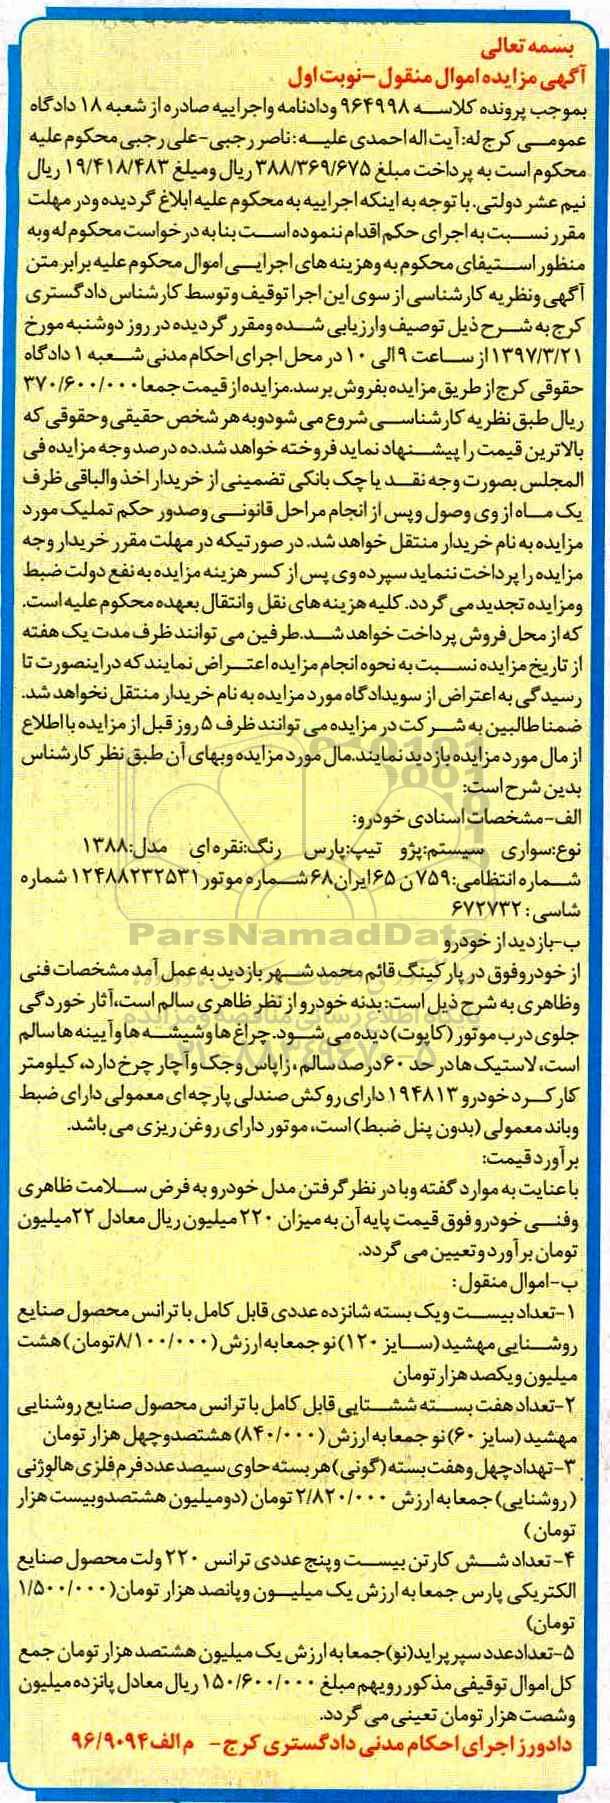 بسمه تعالی
آگهی مزایده اموال منقول -نوبت اول
بموجب پرونده کلاسه ۹۶۴۹۹۸ ودادنامه واجراییه صادره از شعبه ۱۸ دادگاه
عمومی کرج له: آیت اله احمدی علیه : ناصر رجبی-علی رجبی محکوم علیه
محکوم است به پرداخت مبلغ ۳۸۸/۳۶۹/۶۷۵ ریال ومبلغ ۱۹/۴۱۸/۴۸۳ ریال
نیم عشر دولتی. با توجه به اینکه اجراییه به محکوم علیه ابلاغ گردیده ودر مهلت
مقرر نسبت به اجرای حکم اقدام ننموده است بنا به درخواست محکوم له وبه
منظور استیفای محکوم به وهزینه های اجرایی اموال محکوم علیه برابر متن
آگهی ونظریه کارشناسی از سوی این اجرا توقیف وتوسط کارشناس دادگستری
کرج به شرح ذیل توصیف وارزیابی شده ومقرر گردیده در روز دوشنبه مورخ
۱۳۹۷/۳/۲۱ از ساعت ۹ الی ۱۰ در محل اجرای احکام مدنی شعبه ۱ دادگاه
حقوقی کرج از طریق مزایده بفروش برسد.مزایده از قیمت جمعا ۳۷۰/۶۰۰/۰۰۰
ریال طبق نظریه کارشناسی شروع می شودوبه هر شخص حقیقی وحقوقی که
بالاترین قیمت را پیشنهاد نماید فروخته خواهد شد.ده درصد وجه مزایده فی
المجلس بصورت وجه نقد یا چک بانکی تضمینی از خریدار اخذ والباقی ظرف
یک ماه از وی وصول وپس از انجام مراحل قانونی وصدور حکم تملیک مورد
مزایده به نام خریدار منتقل خواهد شد. در صورتیکه در مهلت مقرر خریدار وجه
مزایده را پرداخت ننماید سپرده وی پس از کسر هزینه مزایده به نفع دولت ضبط
ومزایده تجدید می گردد. کلیه هزینه های نقل وانتقال بعهده محکوم علیه است.
که از محل فروش پرداخت خواهد شد.طرفین می توانند ظرف مدت یک هفته
از تاریخ مزایده نسبت به نحوه انجام مزایده اعتراض نمایند که دراینصورت تا
رسیدگی به اعتراض از سویدادگاه مورد مزایده به نام خریدار منتقل نخواهد شد.
ضمنا طالبین به شرکت در مزایده می توانند ظرف ۵ روز قبل از مزایده با اطلاع
از مال مورد مزایده بازدید نمایند.مال مورد مزایده وبهای آن طبق نظر کارشناس
بدین شرح است:
الف-مشخصات اسنادی خودرو:
نوع:سواری سیستم:پژو تیپ:پارس رنگ:نقره ای مدل:۱۳۸۸
شماره انتظامی:۷۵۹ن ۶۵ایران۶۸ شماره موتور ۱۲۴۸۸۲۳۲۵۳۱ شماره
شاسی : ۶۷۲۷۳۲
ب-بازدید از خودرو
از خودروفوق در پارکینگ قائم محمد شهر بازدید به عمل آمد مشخصات فنی
وظاهری به شرح ذیل است: بدنه خودرو از نظر ظاهری سالم است، آثار خوردگی
جلوی درب موتور (کاپوت) دیده می شود. چراغ ها وشیشه ها وآیینه ها سالم
است، لاستیک ها در حد ۶۰درصد سالم ، زاپاس وجک وآچار چرخ دارد، کیلومتر
کارکرد خودرو ۱۹۴۸۱۳ دارای روکش صندلی پارچه ای معمولی دارای ضبط
وباند معمولی (بدون پنل ضبط) است، موتور دارای روغن ریزی می باشد.
برآورد قیمت:
با عنایت به موارد گفته وبا در نظر گرفتن مدل خودرو به فرض سلامت ظاهری
وفنی خودرو فوق قیمت پایه آن به میزان ۲۲۰ میلیون ریال معادل ۲۲میلیون
تومان برآورد وتعیین می گردد.
ب-اموال منقول :
۱-تعداد بیست ویک بسته شانزده عددی قابل کامل با ترانس محصول صنایع
روشنایی مهشید (سایز ۱۲۰) نو جمعا به ارزش (۸/۱۰۰/۰۰۰تومان) هشت
میلیون ویکصد هزار تومان
۲-تعداد هفت بسته ششتایی قابل کامل با ترانس محصول صنایع روشنایی
مهشید (سایز ۶۰) نو جمعا به ارزش (۸۴۰/۰۰۰) هشتصدوچهل هزار تومان
۳-تهداد چهل وهفت بسته (گونی) هر بسته حاوی سیصد عدد فرم فلزی هالوژنی
(روشنایی) جمعا به ارزش ۲/۸۲۰/۰۰۰ تومان (دو میلیون هشتصدوبیست هزار
تومان)
۴- تعداد شش کارتن بیست وپنج عددی ترانس ۲۲۰ ولت محصول صنایع
الکتریکی پارس جمعا به ارزش یک میلیون وپانصد هزار تومان(۱/۵۰۰/۰۰۰
تومان)
۵-تعدادعدد سپر پراید(نو) جمعا به ارزش یک میلیون هشتصد هزار تومان جمع
کل اموال توقیفی مذکور رویهم مبلغ ۱۵۰/۶۰۰/۰۰۰ ریال معادل پانزده میلیون
وشصت هزار تومان تعیینی می گردد.
دادورز اجرای احکام مدنی دادگستری کرج- م الف ۹۶/۹۰۹۴
ParsNamadData
پایگاه اطلاع رسانی مناقصه و مزایده
۰۲۱-۸۸۳۴۹۶۷۰-۵